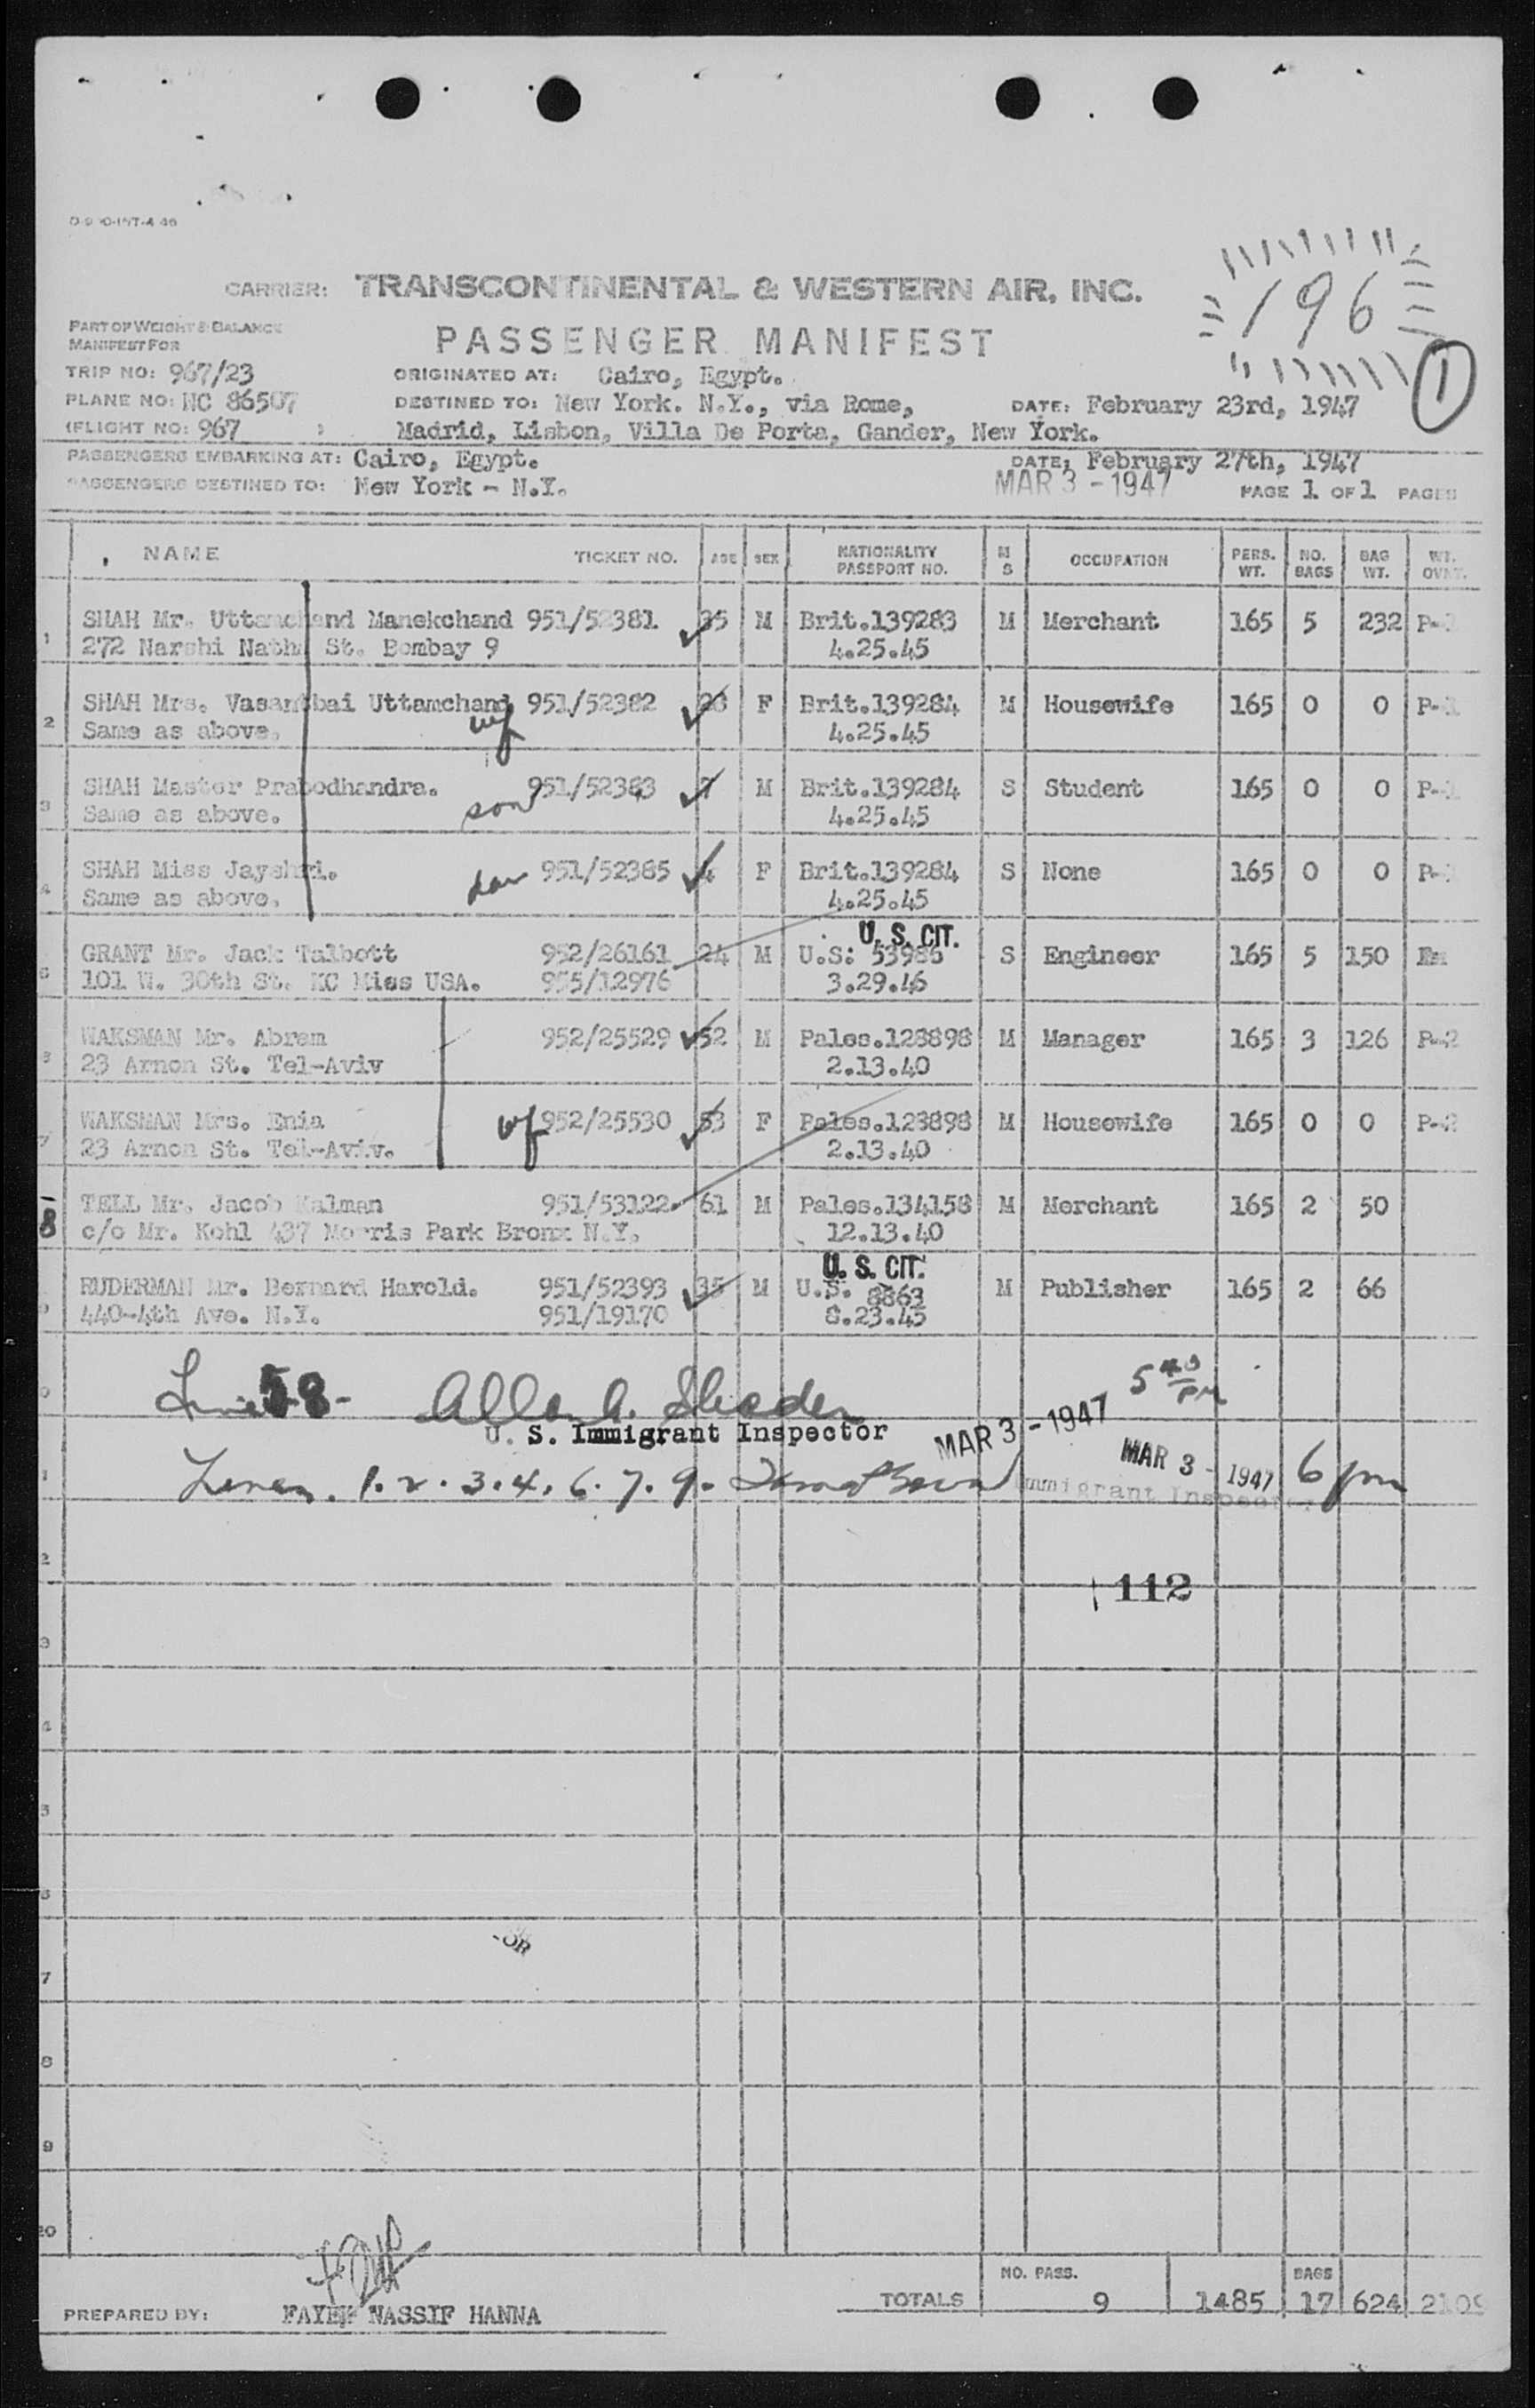 CARRIER: TRANSCONTINENTAL & WESTERN AIR, INC.
196
PART OF WEIGHT & BALANCE
MANIFEST FOR
PASSENGER MANIFEST
1
TRIP NO: 967/23 ORIGINATED AT: Cairo, Egypt.
PLANE NO: NC 86507 DESTINED TO: New York. N.Y., via Rome, DATE: February 23rd, 1947
(FLIGHT NO: 967 ) Madrid, Lisbon, Villa De Porta, Gander, New York.
PASSENGERS EMBARKING AT: Cairo, Egypt. DATE: February 27th, 1947
PASSENGERS DESTINED TO: New York - N.Y. MAR 3 - 1947 PAGE 1 OF 1 PAGES
NAME TICKET NO. AGE SEX NATIONALITY PASSPORT NO. M S OCCUPATION PERS. WT. NO. BAGS BAG WT. WT.
1 SHAH Mr. Uttamchand Manekchand 951/52381 35 M Brit.139283 M Merchant 165 5 232 P-
272 Narshi Natha St. Bombay 9 4.25.45
2 SHAH Mrs. Vasantbai Uttamchand 951/52382 F Brit.139284 M Housewife 165 0 0 P-
Same as above. wf 4.25.45
3 SHAH Master Prabodhandra. 951/52383 7 M Brit.139284 S Student 165 0 0 P-
Same as above. son 4.25.45
4 SHAH Miss Jayshri. dau 951/52385 F Brit.139284 S None 165 0 0 P-
Same as above. 4.25.45
U. S. CIT.
GRANT Mr. Jack Talbott 952/26161 24 M U.S: 53986 S Engineer 165 5 150
101 W. 30th St. KC Miss USA. 955/12976 3.29.46
WAKSMAN Mr. Abram 952/25529 52 M Pales.128898 M Manager 165 3 126 P-2
23 Arnon St. Tel-Aviv 2.13.40
7 WAKSMAN Mrs. Enia wf 952/25530 53 F Pales.128898 M Housewife 165 0 0 P-2
23 Arnon St. Tel-Aviv. 2.13.40
8 TELL Mr. Jacob Kalman 951/53122 61 M Pales.134158 M Merchant 165 2 50
c/o Mr. Kohl 437 Morris Park Bronx N.Y. 12.13.40
U. S. CIT.
RUDERMAN Mr. Bernard Harold. 951/52393 35 M U.S. 8863 M Publisher 165 2 66
440-4th Ave. N.Y. 951/19170 8.23.45
5 40 PM
U. S. Immigrant Inspector MAR 3 - 1947
Lines. 1. 2. 3. 4. 6. 7. 9. Immigrant Inspector MAR 3 - 1947 6 pm
112
7
8
9
20
NO. PASS. BAGS
TOTALS 9 1485 17 624
PREPARED BY: FAYEK NASSIF HANNA